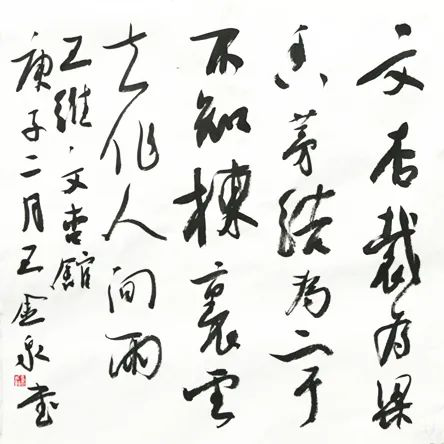 文杏裁为梁
香茅結为宇
不知棟裏雲
去作人间雨
王維·文杏館
庚子二月王金泉书